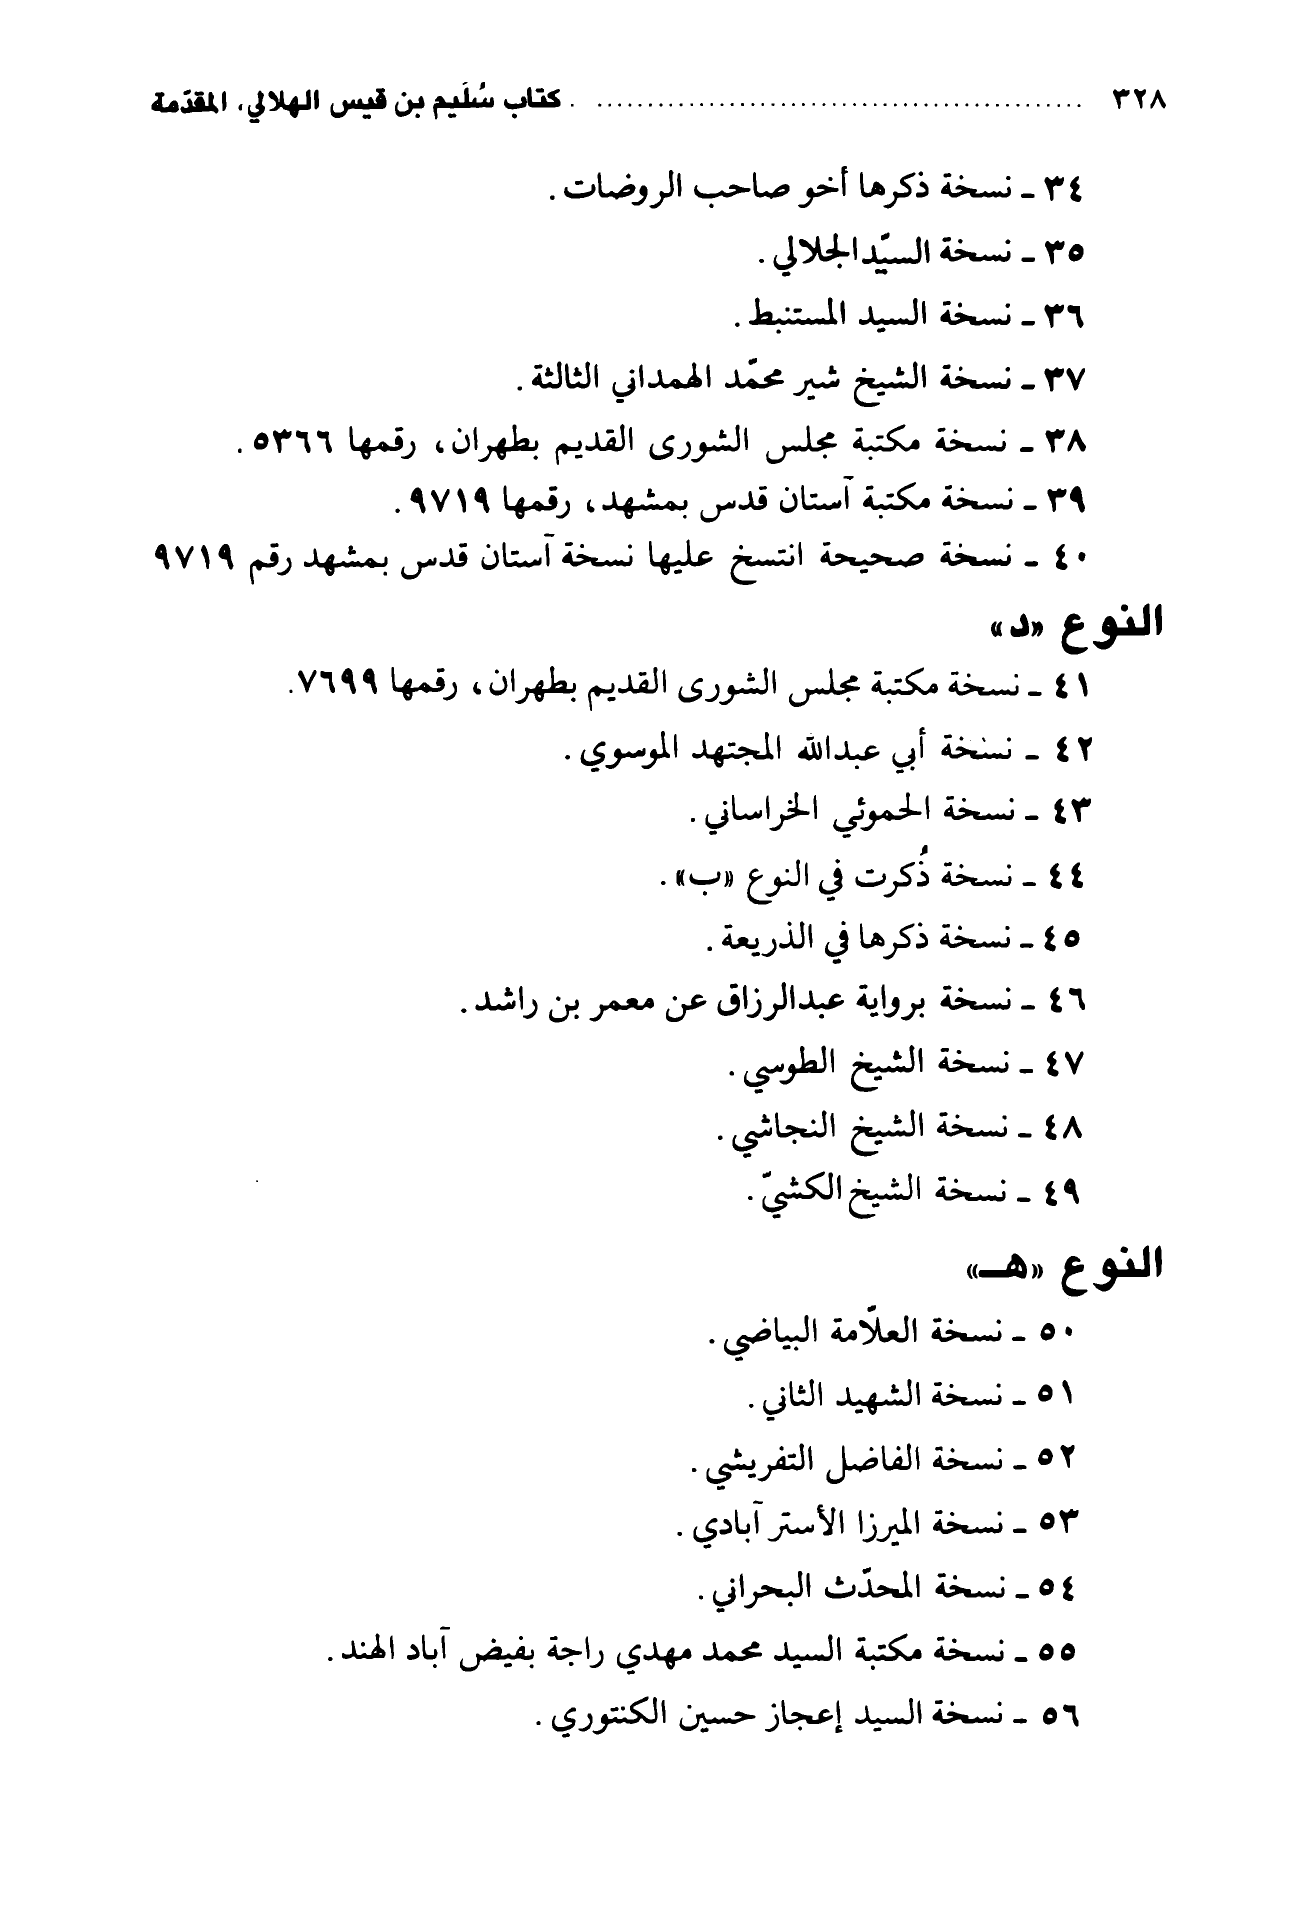 ٣٢٨ ................................................ كتاب سُلَيم بن قيس الهلالي، المقدّمة
٣٤ ـ نسخة ذكرها أخو صاحب الروضات.
٣٥ ـ نسخة السيّدالجلالي.
٣٦ ـ نسخة السيد المستنبط.
٣٧ ـ نسخة الشيخ شير محمّد الهمداني الثالثة.
٣٨ ـ نسخة مكتبة مجلس الشورى القديم بطهران، رقمها ٥٣٦٦.
٣٩ ـ نسخة مكتبة آستان قدس بمشهد، رقمها ٩٧١٩.
٤٠ ـ نسخة صحيحة انتسخ عليها نسخة آستان قدس بمشهد رقم ٩٧١٩
النوع «د»
٤١ ـ نسخة مكتبة مجلس الشورى القديم بطهران، رقمها ٧٦٩٩.
٤٢ ـ نسخة أبي عبدالله المجتهد الموسوي.
٤٣ ـ نسخة الحموئي الخراساني.
٤٤ ـ نسخة ذُكرت في النوع «ب».
٤٥ ـ نسخة ذكرها في الذريعة.
٤٦ ـ نسخة برواية عبدالرزاق عن معمر بن راشد.
٤٧ ـ نسخة الشيخ الطوسي.
٤٨ ـ نسخة الشيخ النجاشي.
٤٩ ـ نسخة الشيخ الكشيّ.
النوع «هـ»
٥٠ ـ نسخة العلّامة البياضي.
٥١ ـ نسخة الشهيد الثاني.
٥٢ ـ نسخة الفاضل التفريشي.
٥٣ ـ نسخة الميرزا الأستر آبادي.
٥٤ ـ نسخة المحدّث البحراني.
٥٥ ـ نسخة مكتبة السيد محمد مهدي راجة بفيض آباد الهند.
٥٦ ـ نسخة السيد إعجاز حسين الكنتوري.